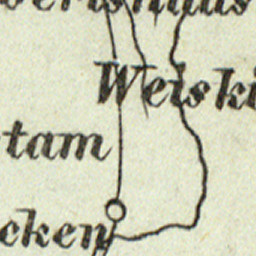 Weiski
tam
cken